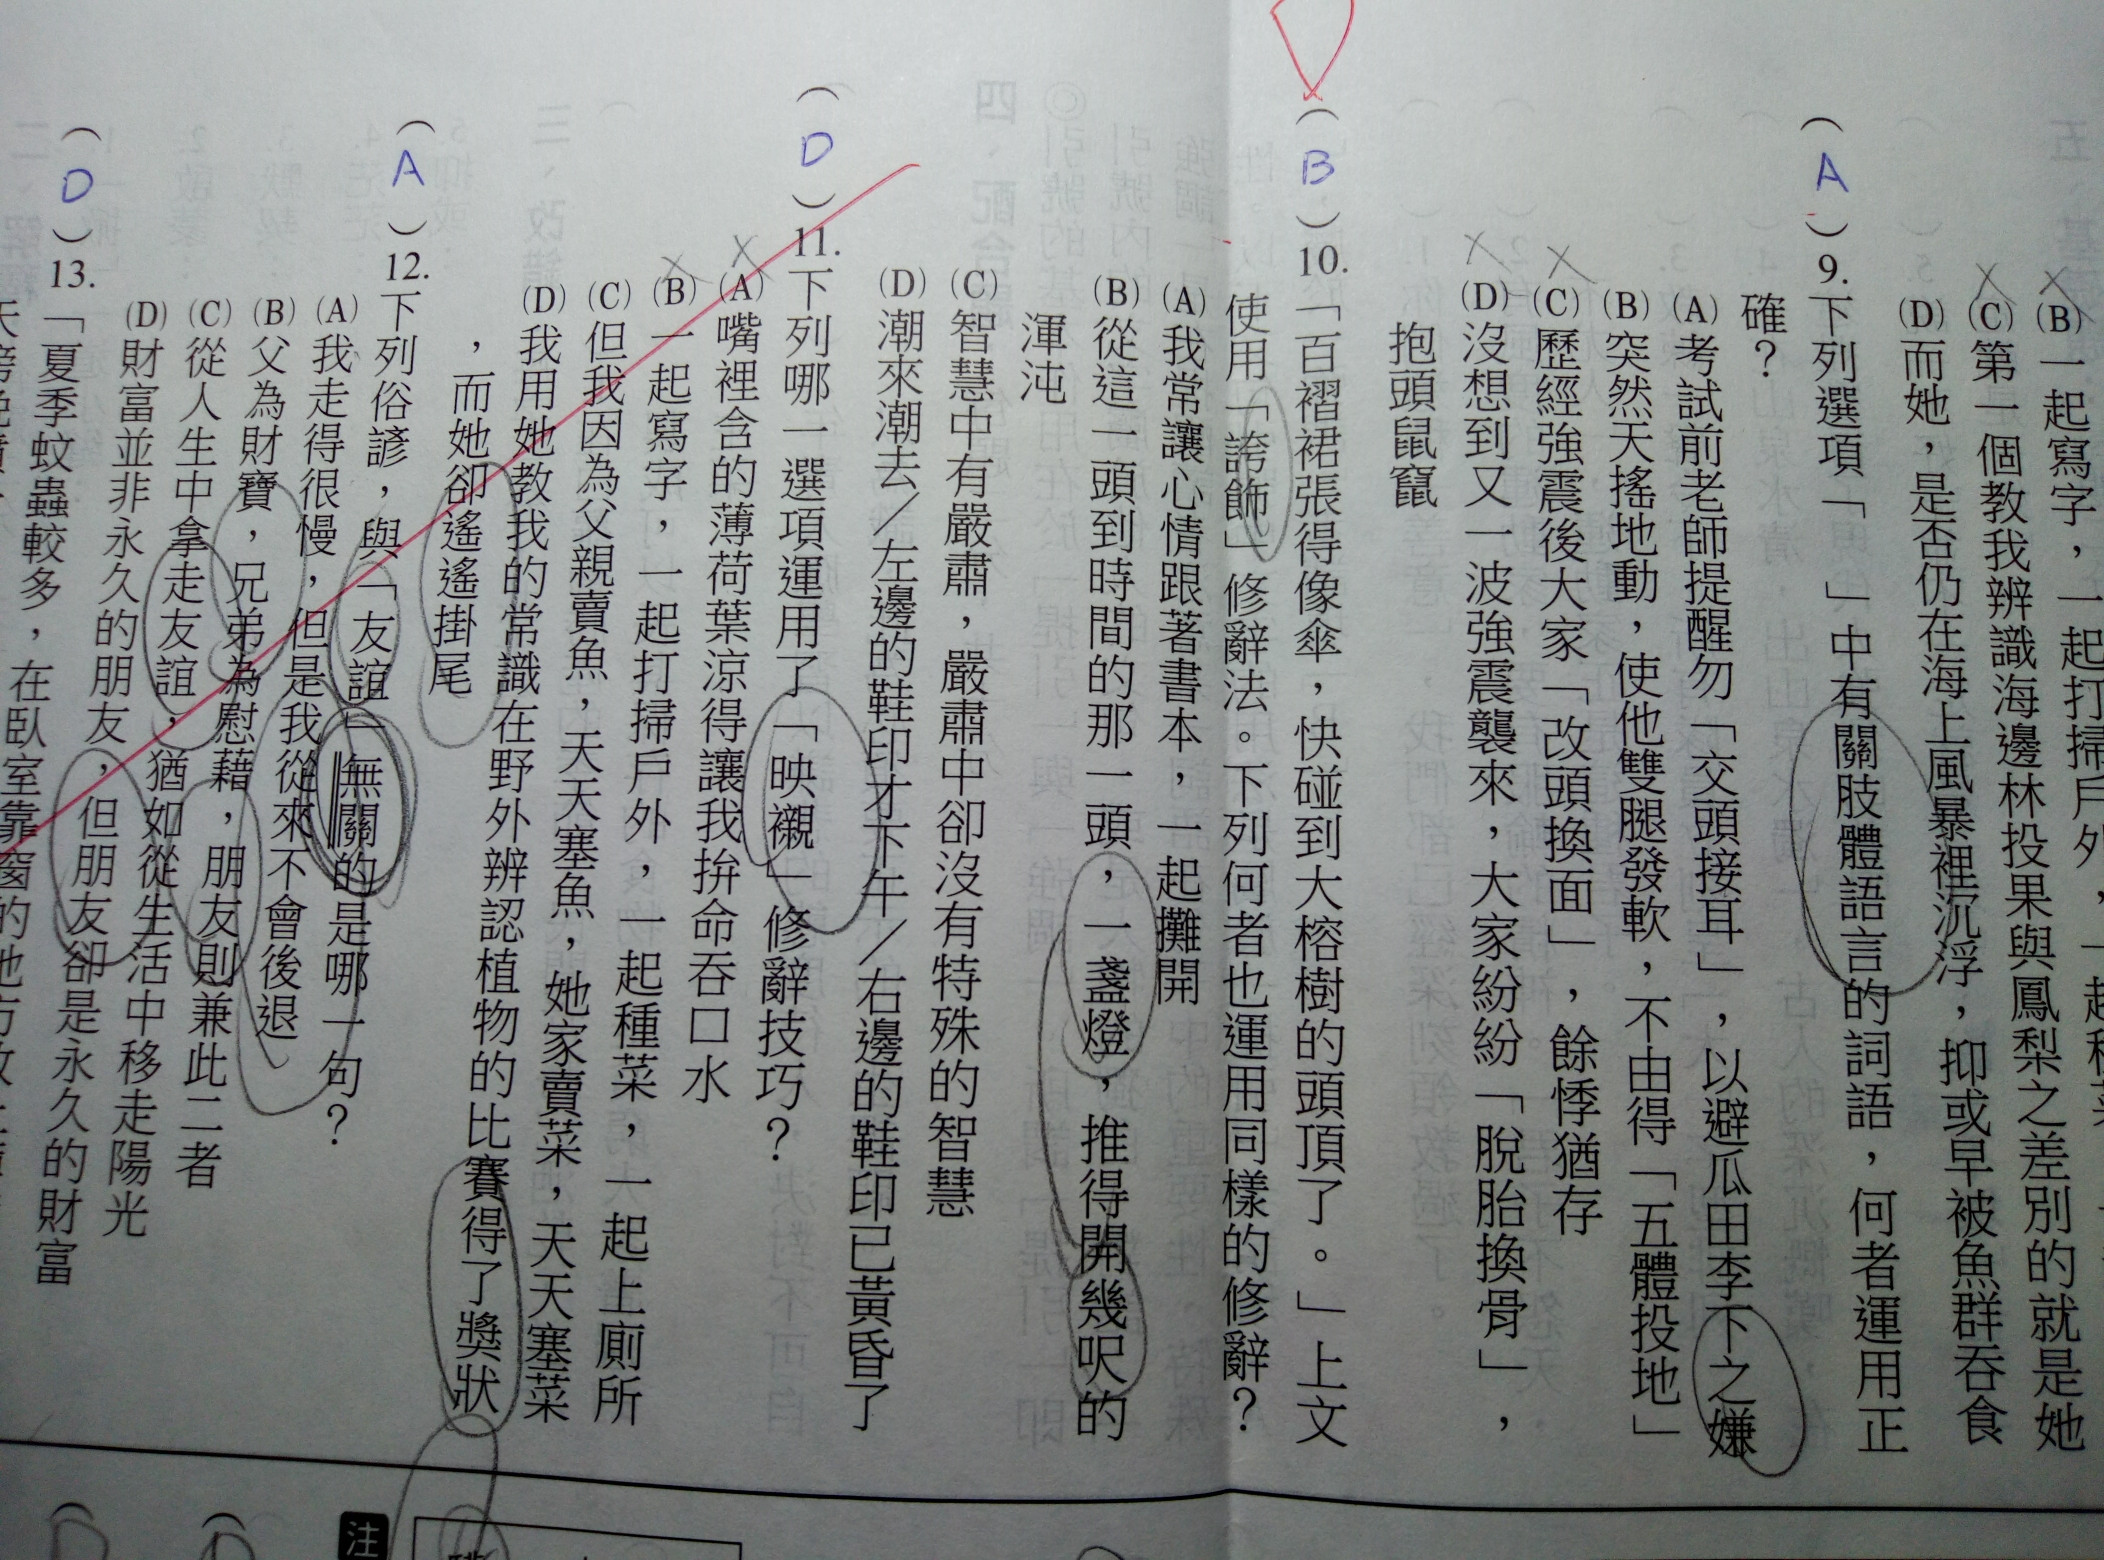 (B)一起寫字，一起打掃戶外，一起種菜
(C)第一個教我辨識海邊林投果與鳳梨之差別的就是她
(D)而她，是否仍在海上風暴裡沉浮，抑或早被魚群吞食
（A）9.下列選項「　」中有關肢體語言的詞語，何者運用正
確？
(A)考試前老師提醒勿「交頭接耳」，以避瓜田李下之嫌
(B)突然天搖地動，使他雙腿發軟，不由得「五體投地」
(C)歷經強震後大家「改頭換面」，餘悸猶存
(D)沒想到又一波強震襲來，大家紛紛「脫胎換骨」，
抱頭鼠竄
（B）10.「百褶裙張得像傘，快碰到大榕樹的頭頂了。」上文
使用「誇飾」修辭法。下列何者也運用同樣的修辭？
(A)我常讓心情跟著書本，一起攤開
(B)從這一頭到時間的那一頭，一盞燈，推得開幾呎的
渾沌
(C)智慧中有嚴肅，嚴肅中卻沒有特殊的智慧
(D)潮來潮去／左邊的鞋印才下午／右邊的鞋印已黃昏了
（D）11.下列哪一選項運用了「映襯」修辭技巧？
(A)嘴裡含的薄荷葉涼得讓我拚命吞口水
(B)一起寫字，一起打掃戶外，一起種菜，一起上廁所
(C)但我因為父親賣魚，天天塞魚，她家賣菜，天天塞菜
(D)我用她教我的常識在野外辨認植物的比賽得了獎狀
，而她卻遙遙掛尾
（A）12.下列俗諺，與「友誼」無關的是哪一句？
(A)我走得很慢，但是我從來不會後退
(B)父為財寶，兄弟為慰藉，朋友則兼此二者
(C)從人生中拿走友誼，猶如從生活中移走陽光
(D)財富並非永久的朋友，但朋友卻是永久的財富
（D）13.「夏季蚊蟲較多，在臥室靠窗的地方放上
注